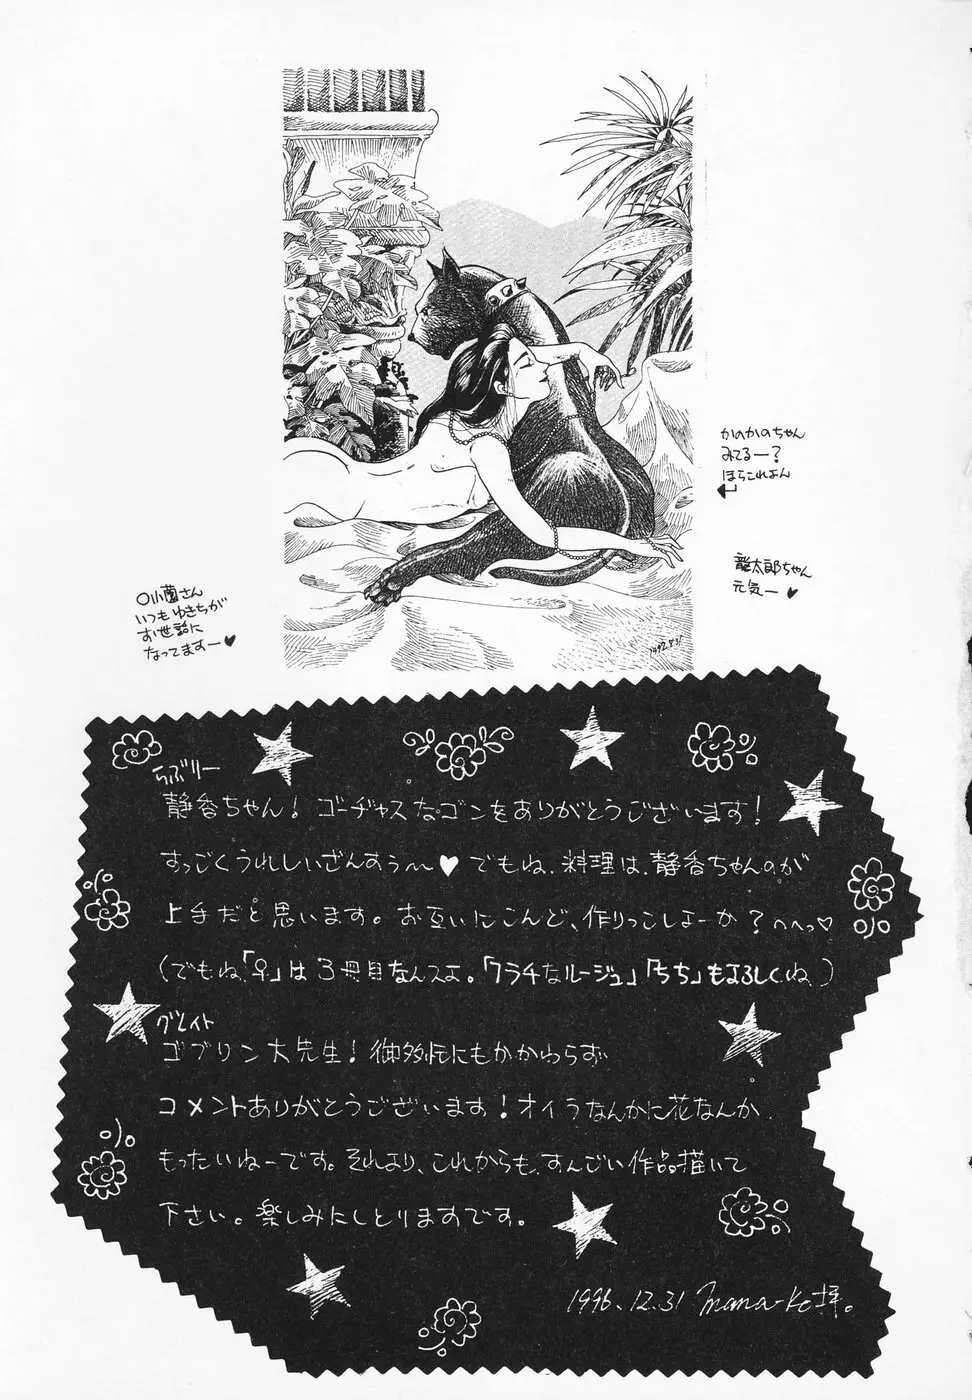 かのかのちゃん
みてるー？
ほらこれよん
龍太郎ちゃん
元気ー♥
○小薗さん
いつもゆきちが
お世話に
なってますー♥
1992.5.31
らぶりー
静香ちゃん！ゴージャスなゴンをありがとうございます！
すっごくうれしいざんすぅ〜♥でもね、料理は、静香ちゃんのが
上手だと思います。お互いにこんど、作りっこしよーか？へへっ♡
（でもね、「♀」は3冊目なんスよ。「フラチなルージュ」「うち」もよろしくね）
グレイト
ゴブリン大先生！御多忙にもかかわらず
コメントありがとうございます！オイラなんかに花なんか
もったいねーです。それより、これからも、すんごい作品描いて
下さい。楽しみにしとりますです。
1996.12.31 Mana-Ko拝。